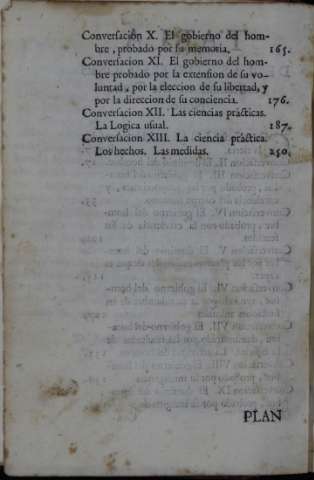 Conversación X. El gobierno del hom-
bre, probado por su memoria. 165.
Conversacion XI. El gobierno del hom-
bre probado por la extension de su vo-
luntad, por la eleccion de su libertad, y
por la direccion de su conciencia. 176.
Conversacion XII. Las ciencias prácticas.
La Logica usual. 187.
Conversacion XIII. La ciencia práctica.
Los hechos. Las medidas. 250.
PLAN